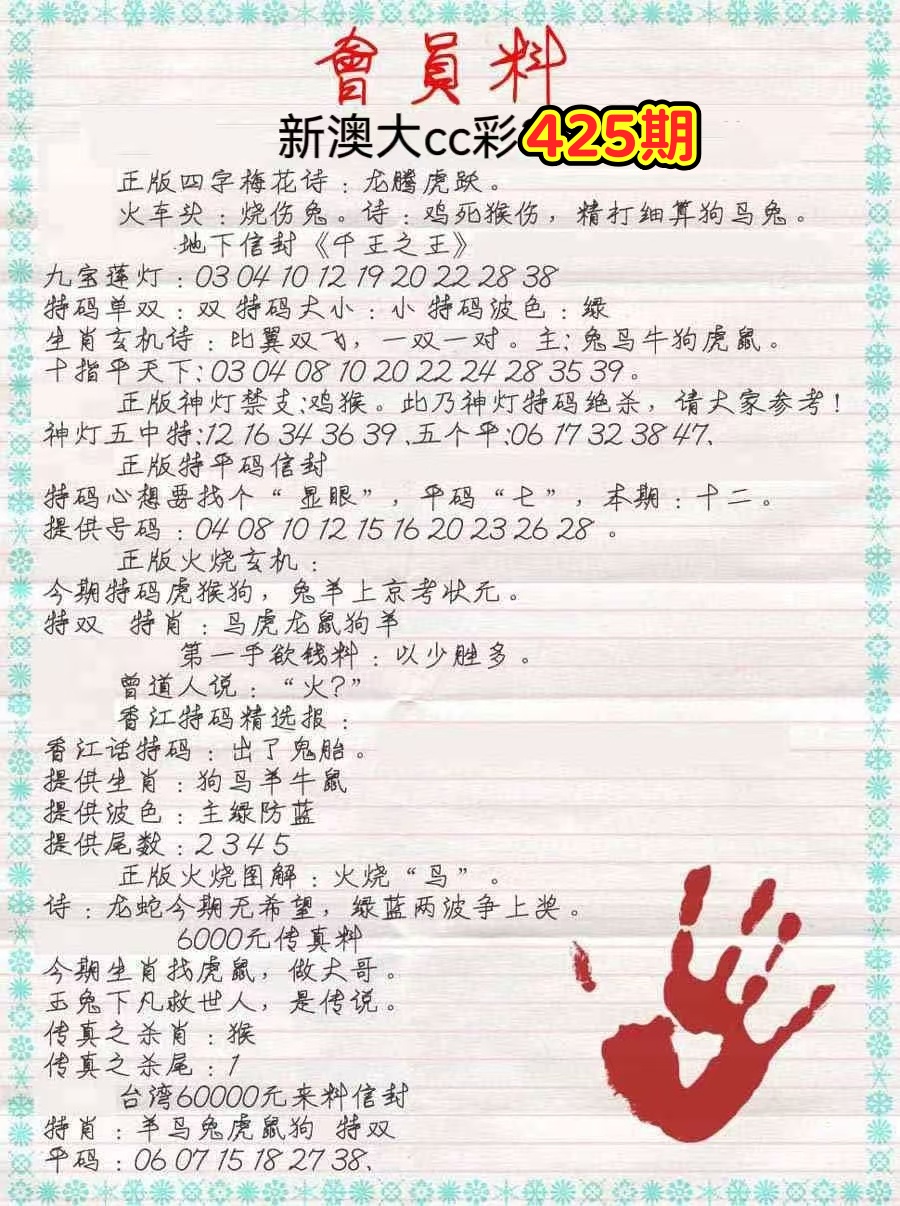 會員料
新澳大cc彩425期
正版四字梅花诗：龙腾虎跃。
火车头：烧伤兔。诗：鸡死猴伤，精打细算狗马兔。
地下信封《千王之王》
九宝莲灯：03 04 10 12 19 20 22 28 38
特码单双：双 特码大小：小 特码波色：绿
生肖玄机诗：比翼双飞，一双一对。主：兔马牛狗虎鼠。
十指平天下：03 04 08 10 20 22 24 28 35 39。
正版神灯禁支：鸡猴。此乃神灯特码绝杀，请大家参考！
神灯五中特：12 16 34 36 39、五个平：06 17 32 38 47、
正版特平码信封
特码心想要找个“显眼”，平码“七”，本期：十二。
提供号码：04 08 10 12 15 16 20 23 26 28 。
正版火烧玄机：
今期特码虎猴狗，兔羊上京考状元。
特双 特肖：马虎龙鼠狗羊
第一手欲钱料：以少胜多。
曾道人说：“火？”
香江特码精选报：
香江话特码：出了鬼胎。
提供生肖：狗马羊牛鼠
提供波色：主绿防蓝
提供尾数：2 3 4 5
正版火烧图解：火烧“鸟”。
诗：龙蛇今期无希望，绿蓝两波争上奖。
6000元传真料
今期生肖找虎鼠，做大哥。
玉兔下凡救世人，是传说。
传真之杀肖：猴
传真之杀尾：1
台湾60000元来料信封
特肖：羊马兔虎鼠狗 特双
平码：06 07 15 18 27 38、